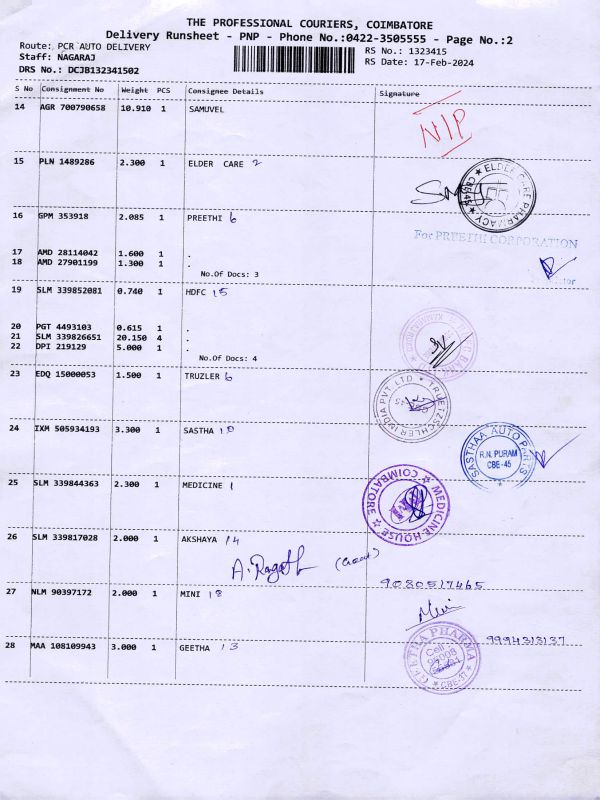 THE PROFESSIONAL COURIERS, COIMBATORE
Delivery Runsheet - PNP - Phone No.:0422-3505555 - Page No.:2
Route: PCR AUTO DELIVERY RS No.: 1323415
Staff: NAGARAJ RS Date: 17-Feb-2024
DRS No.: DCJB132341502
S No Consignment No Weight PCS Consignee Details Signature
14 AGR 700790658 10.910 1 SAMUVEL
N/P
15 PLN 1489286 2.300 1 ELDER CARE 2
ELDER CARE PHARMACY CBE-45
16 GPM 353918 2.085 1 PREETHI 6
For PREETHI CORPORATION
17 AMD 28114042 1.600 1 .
18 AMD 27901199 1.300 1 .
No.Of Docs: 3
19 SLM 339852081 0.740 1 HDFC 15
20 PGT 4493103 0.615 1 .
21 SLM 339826651 20.150 4 .
22 DPI 219129 5.000 1 .
No.Of Docs: 4
23 EDQ 15000053 1.500 1 TRUZLER 6
TRUETZSCHLER INDIA PVT. LTD
24 IXM 505934193 3.300 1 SASTHA 10
SASTHAA AUTO PARTS
R.N. PURAM
CBE-45
25 SLM 339844363 2.300 1 MEDICINE 1
MEDICINE HOUSE COIMBATORE
26 SLM 339817028 2.000 1 AKSHAYA 14
9080517465
27 NLM 90397172 2.000 1 MINI 18
9994313137
28 MAA 108109943 3.000 1 GEETHA 13
GEETHA PHARMA
Cell
CBE-37